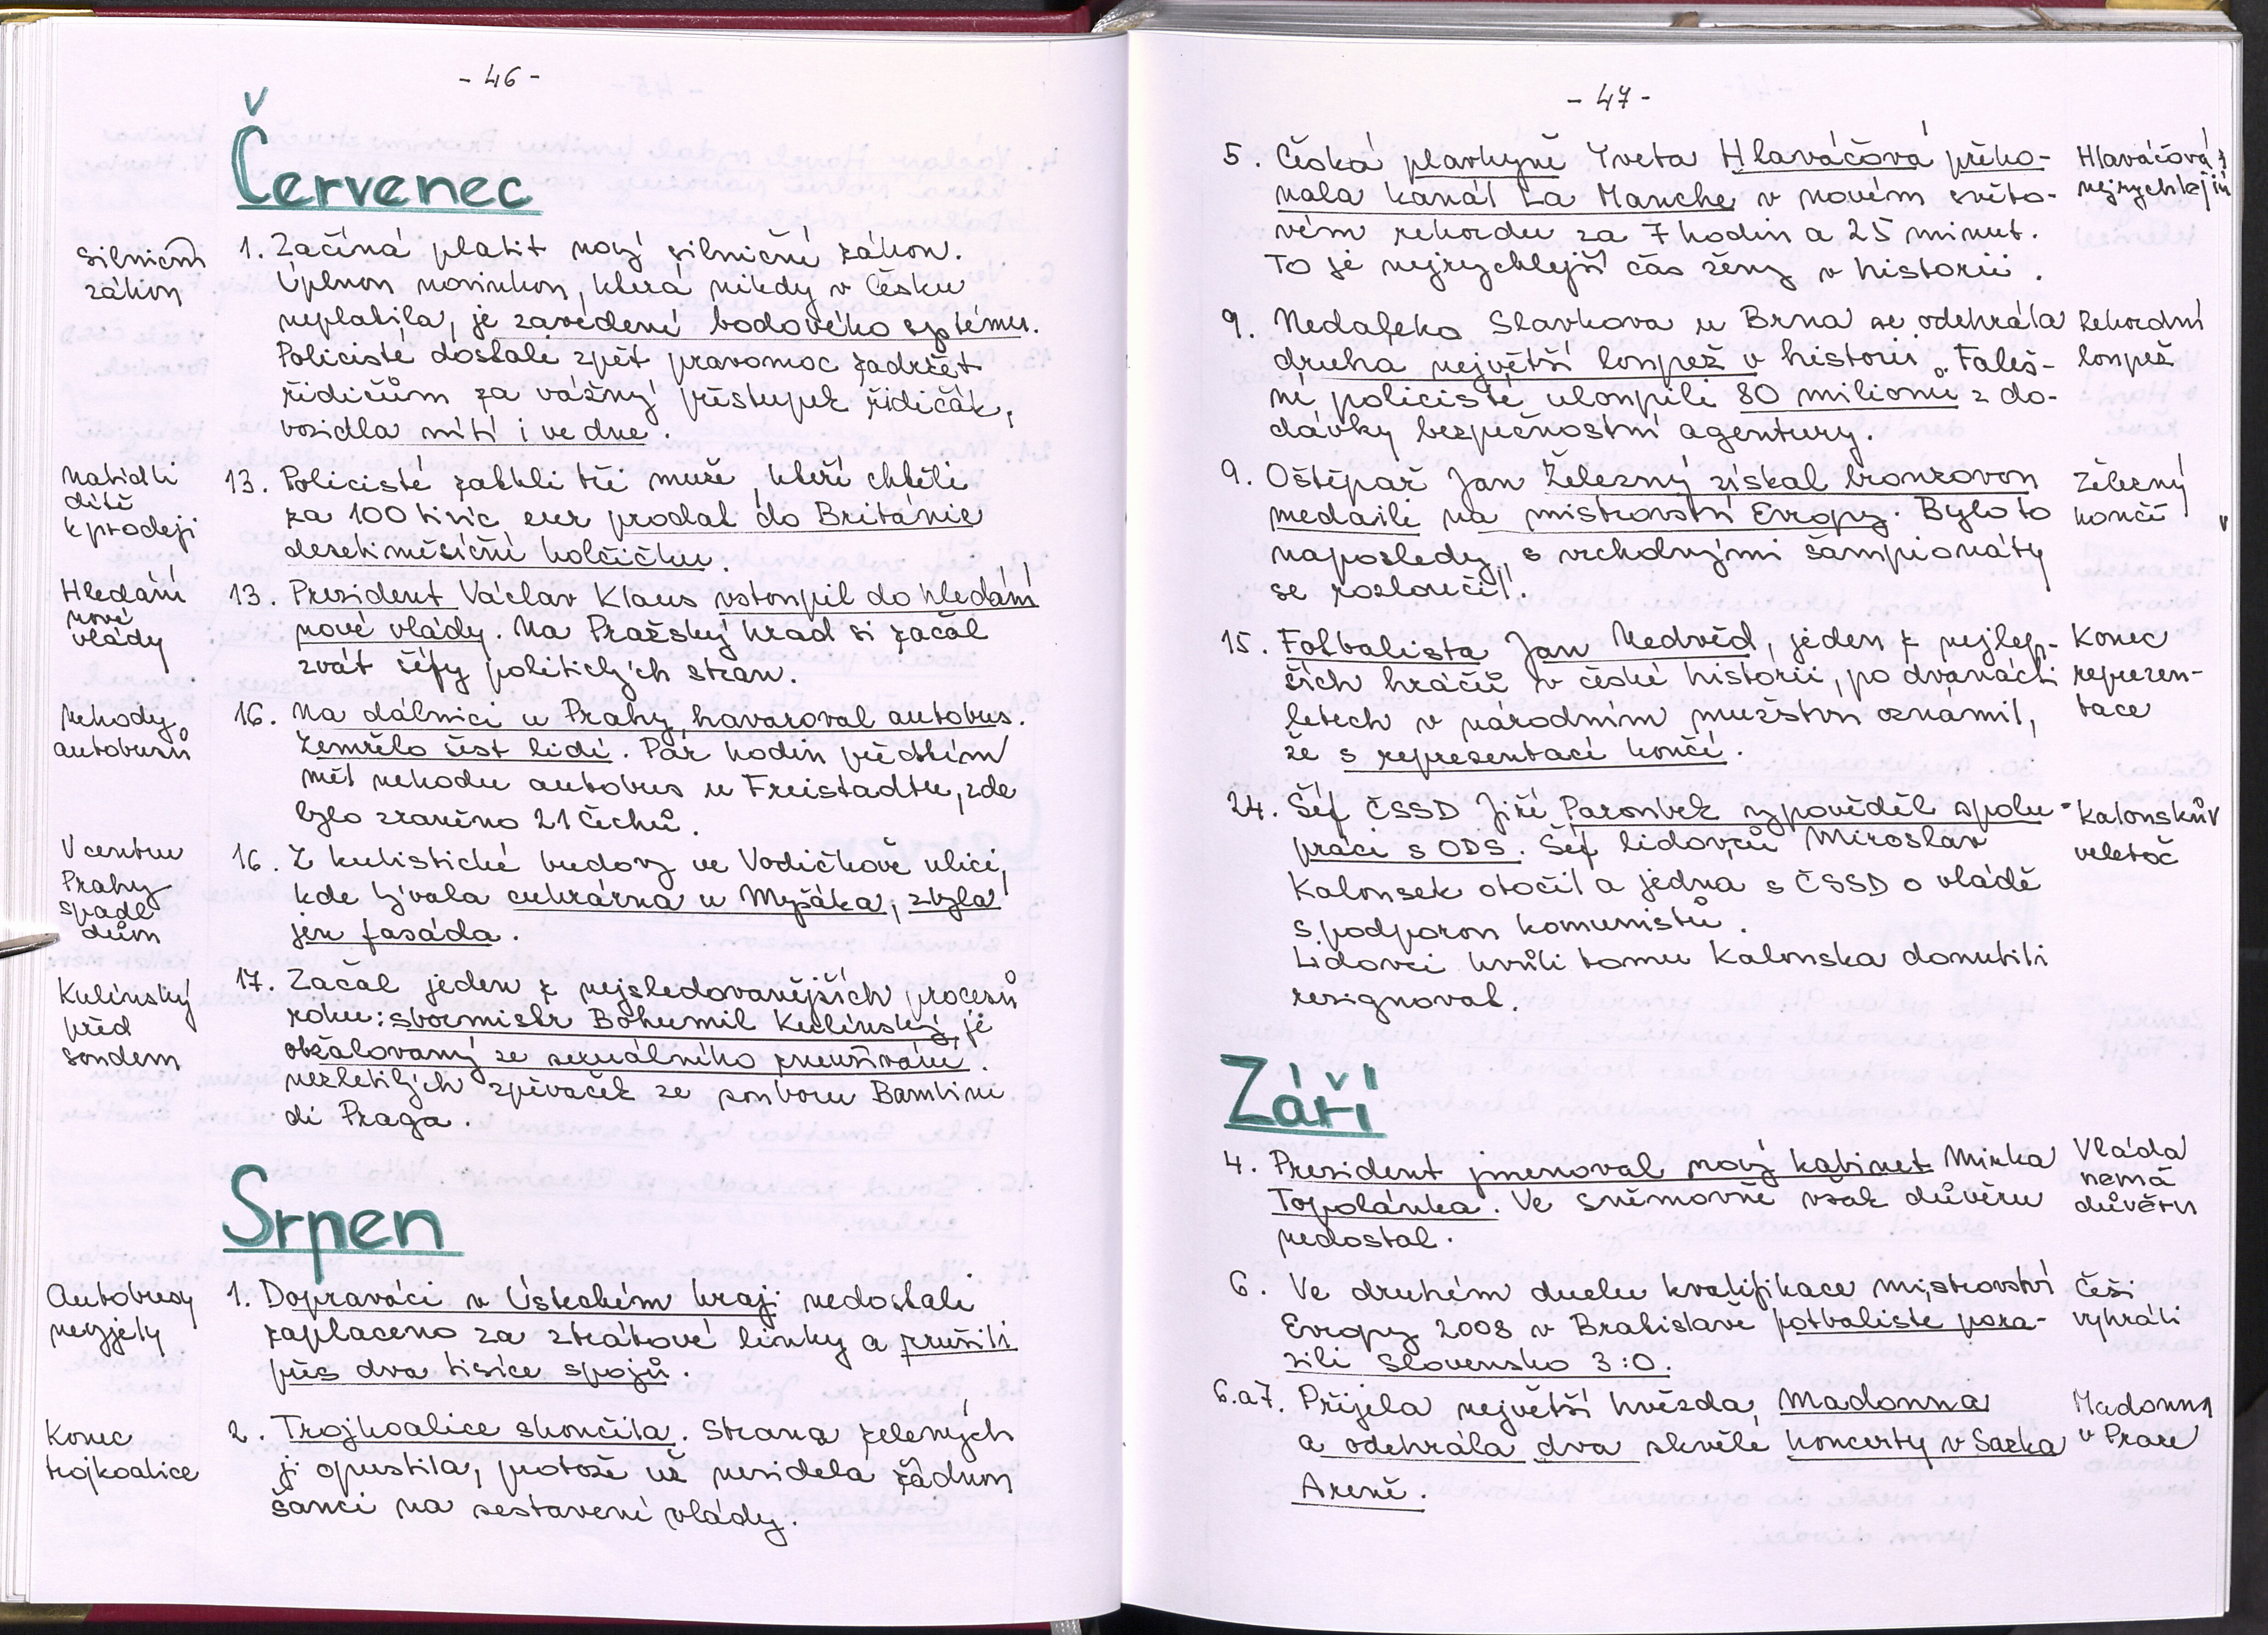 - 46 -
Červenec
silniční
zákon
1. Začíná platit nový silniční zákon.
Úplnou novinkou, která nikdy v Česku
neplatila, je zavedení bodového systému.
Policisté dostali zpět pravomoc zadržet
řidičům za vážný přestupek řidičák,
vozidla svítí i ve dne.
Nabídli
dítě
k prodeji
13. Policisté zatkli tři muže, kteří chtěli
za 100 tisíc eur prodat do Británie
desetiměsíční holčičku.
Hledání
nové
vlády
13. Prezident Václav Klaus vstoupil do hledání
nové vlády. Na Pražský hrad si začal
zvát šéfy politických stran.
Nehody
autobusů
16. Na dálnici u Prahy havaroval autobus.
Zemřelo šest lidí. Pár hodin předtím
měl nehodu autobus u Freistadtu, zde
bylo zraněno 21 Čechů.
V centru
Prahy
spadl
dům
16. Z kubistické budovy ve Vodičkově ulici,
kde bývala cukrárna u Myšáka, zbyla
jen fasáda.
Kulínský
před
soudem
17. Začal jeden z nejsledovanějších procesů
roku: sbormistr Bohumil Kulínský je
obžalovaný ze sexuálního zneužívání.
nezletilých zpěvaček ze souboru Bambini
di Praga.
Srpen
Autobusy
nevyjely
1. Dopraváci v Ústeckém kraji nedostali
zaplaceno za ztrátové linky a zrušili
přes dva tisíce spojů.
Konec
trojkoalice
2. Trojkoalice skončila. Strana zelených
ji opustila, protože už neviděla žádnou
šanci na sestavení vlády.
- 47 -
5. Česká plavkyně Yveta Hlaváčová překo-
nala kanál La Manche v novém světo-
vém rekordu za 7 hodin a 25 minut.
To je nejrychlejší čas ženy v historii.
Hlaváčová
nejrychlejší
9. Nedaleko Slavkova u Brna se odehrála
druhá největší loupež v historii. Faleš-
ní policisté uloupili 80 milionů z do-
dávky bezpečnostní agentury.
Rekordní
loupež
9. Oštěpař Jan Železný získal bronzovou
medaili na mistrovství Evropy. Bylo to
naposledy, s vrcholnými šampionáty
se rozloučil.
Železný
končí
15. Fotbalista Jan Nedvěd, jeden z nejlep-
ších hráčů v české historii, po dvanácti
letech v národním mužstvu oznámil,
že s reprezentací končí.
Konec
reprezen-
tace
24. Šéf ČSSD Jiří Paroubek vypověděl spolu-
práci s ODS. Šéf lidovců Miroslav
Kalousek otočil a jedna s ČSSD o vládě
s podporou komunistů.
Lidovci kvůli tomu Kalouska donutili
resignovat.
Kalouskův
veletoč
Září
4. Prezident jmenoval nový kabinet Mirka
Topolánka. Ve sněmovně však důvěru
nedostal.
Vláda
nemá
důvěru
6. Ve druhém duelu kvalifikace mistrovství
Evropy 2008 v Bratislavě fotbalisté pora-
zili Slovensko 3:0.
Češi
vyhráli
6. a 7. Přijela největší hvězda, Madonna
a odehrála dva skvělé koncerty v Sazka
Areně.
Madonna
v Praze